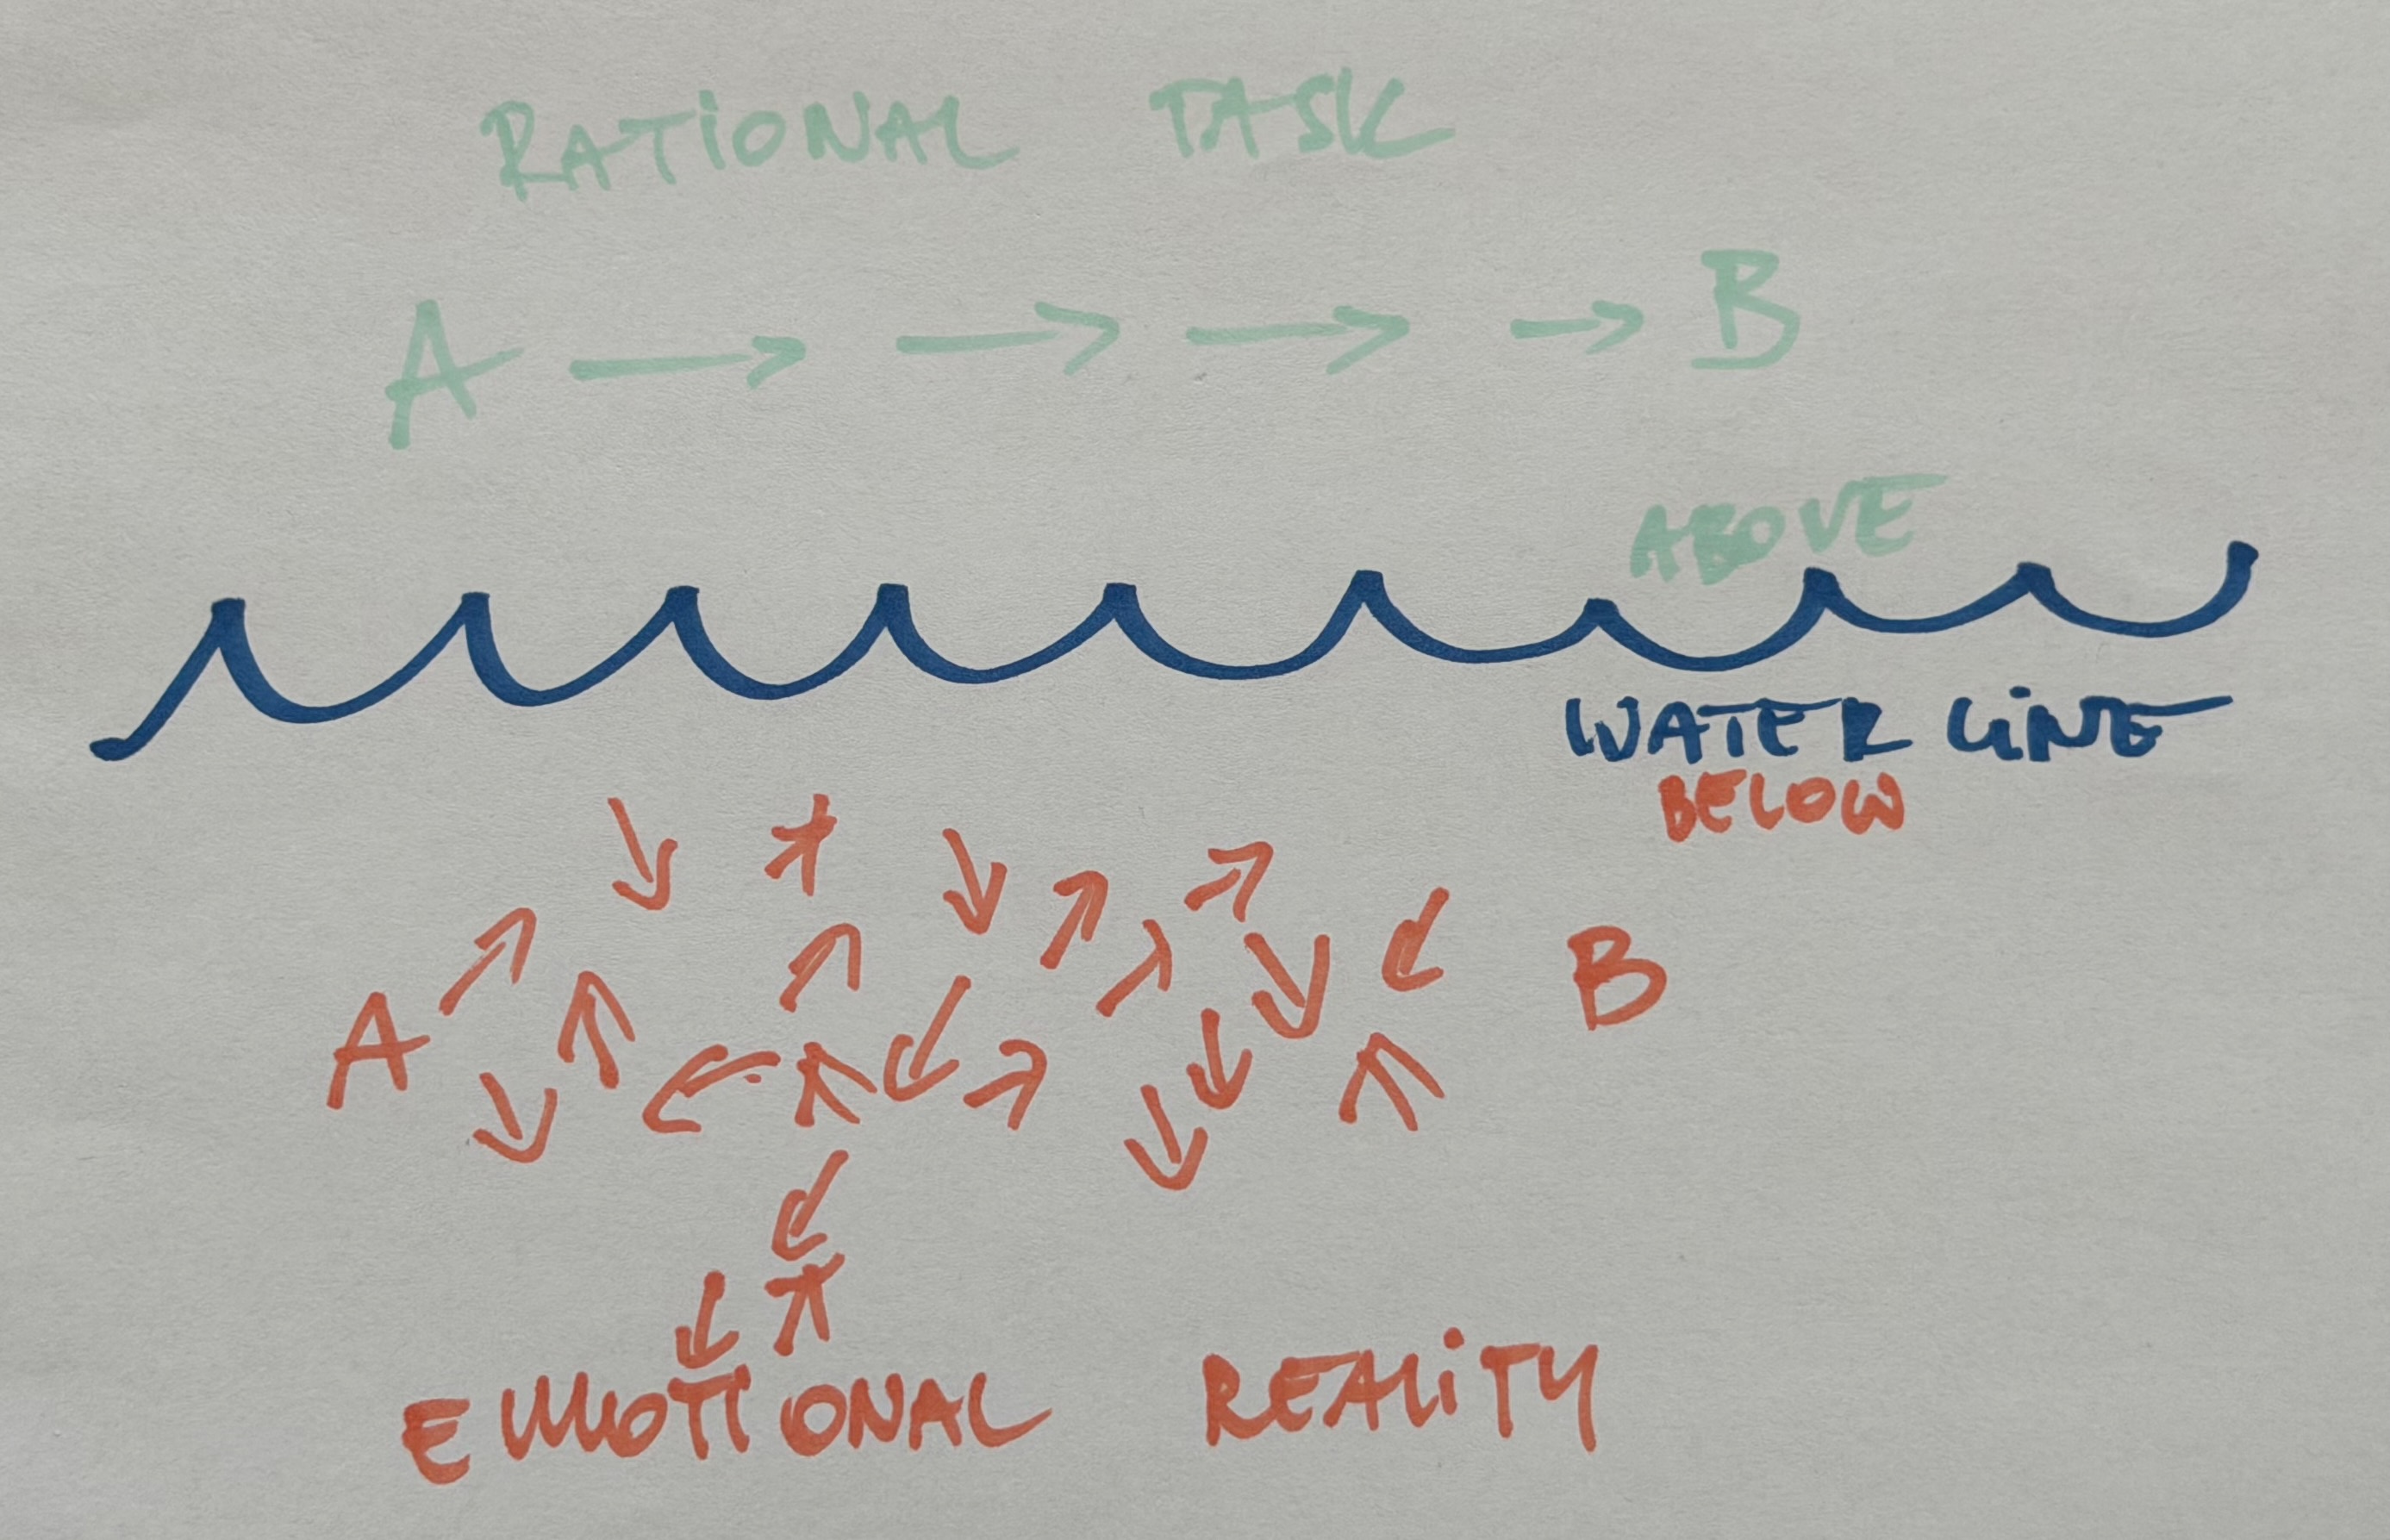 RATIONAL TASK
A → → → → B
ABOVE
WATER LINE
BELOW
A B
EMOTIONAL REALITY